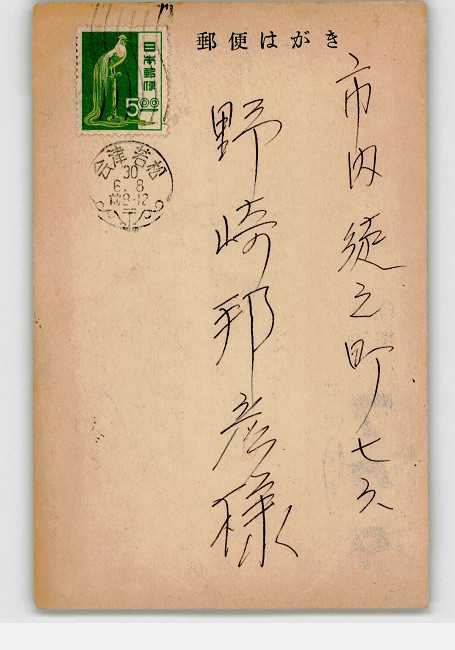 郵便はがき
日本郵便
500
会津若松
30
6.8
前8-12
市内徒之町七久
野崎邦彦様